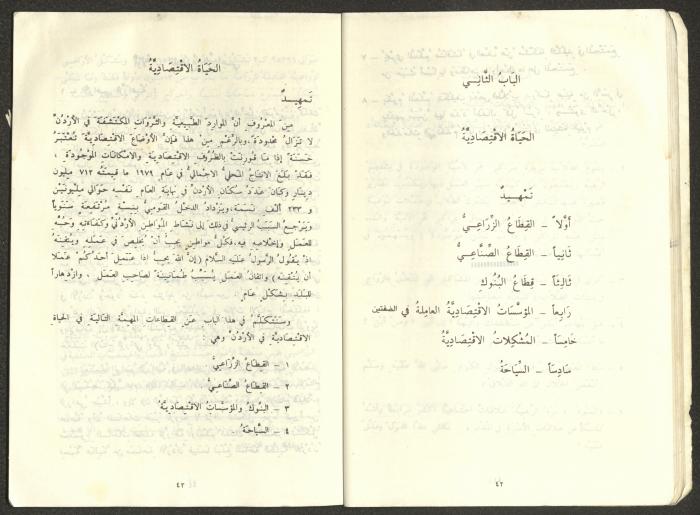 البَابُ الثَّانِي
الحَيَاةُ الاقْتِصَادِيَّةُ
تَمْهِيدٌ
أوَّلاً - القِطَاعُ الزِّرَاعِيُّ
ثانِياً - القِطَاعُ الصِّنَاعِيُّ
ثالِثاً - قِطَاعُ البُنُوكِ
رَابِعاً - المُؤَسَّسَاتُ الاقْتِصَادِيَّةُ العَامِلَةُ فِي الضفتين
خَامِساً - المُشْكِلَاتُ الاقْتِصَادِيَّةُ
سَادِسَاً - السِّيَاحَةُ
٤٢
الحَيَاةُ الاقْتِصَادِيَّةُ
تَمْهِيدٌ
مِنَ المَعْرُوفِ أنَّ المَوَارِدَ الطَّبِيعِيَّةَ وَالثَّرَوَاتِ المُكْتَشَفَةَ فِي الأرْدُنِّ
لا تَزَالُ مَحْدُودَةً، وبِالرَّغْمِ مِنْ هَذا فَإنَّ الأوْضَاعَ الاقْتِصَادِيَّةَ تُعْتَبَرُ
حَسَنَةً إذا مَا قُورِنَتْ بِالظُّرُوفِ الاقْتِصَادِيَّةِ وَالامْكَانَاتِ المَوْجُودَةِ ،
فَقَدْ بَلَغَ الانْتَاجُ المَحَلِّيُّ الاجْمَالِيُّ فِي عَامِ ١٩٧٩ مَا قِيمَتُهُ ٧١٢ مِلْيُونَ
دِينَارٍ وَكَانَ عَدَدُ سُكَّانِ الأرْدُنِّ فِي نِهَايَةِ العَامِ نَفْسِهِ حَوَالَي مِلْيُونَيْنِ
و ٢٣٣ ألْفَ نَسَمَةٍ، وَيَزْدَادُ الدَّخْلُ القَوْمِيُّ بِنِسْبَةٍ مُرْتَفِعَةٍ سَنَوِيّاً
وَيَرْجِعُ السَّبَبُ الرَّئِيسِيُّ فِي ذَلِكَ إلَى نَشَاطِ المُوَاطِنِ الأُرْدُنِّيِّ وَكَفَاءَتِهِ وَحُبِّهِ
لِلعَمَلِ وَإخْلَاصِهِ فِيهِ، فَكُلُّ مُوَاطِنٍ يَجِبُ أنْ يُخْلِصَ فِي عَمَلِهِ وَيُتْقِنَهُ
إذْ يَقُولُ الرَّسُولُ عَلَيْهِ السَّلَامُ (إنَّ اللهَ يُحِبُّ إذَا عَمِلَ أحَدُكُمْ عَمَلاً
أن يُتْقِنَهُ) وَاتْقَانُ العَمَلِ يُسَبِّبُ طُمَأنِينَةً لِصَاحِبِ العَمَلِ ، وَازْدِهَاراً
لِلْبَلَدِ بِشَكْلٍ عَامٍّ .
وَسَنَتَكَلَّمُ فِي هَذا البَابِ عَنِ القِطَاعَاتِ المُهِمَّةِ التَّالِيَةِ فِي الحَيَاةِ
الاقْتِصَادِيَّةِ فِي الأرْدُنِّ وَهِيَ :
١ - القِطَاعُ الزِّرَاعِيُّ
٢ - القِطَاعُ الصِّنَاعِيُّ
٣ - البُنُوكُ وَالمُؤَسَّسَاتُ الاقْتِصَادِيَّةُ
٤ - السِّيَاحَةُ
٤٣